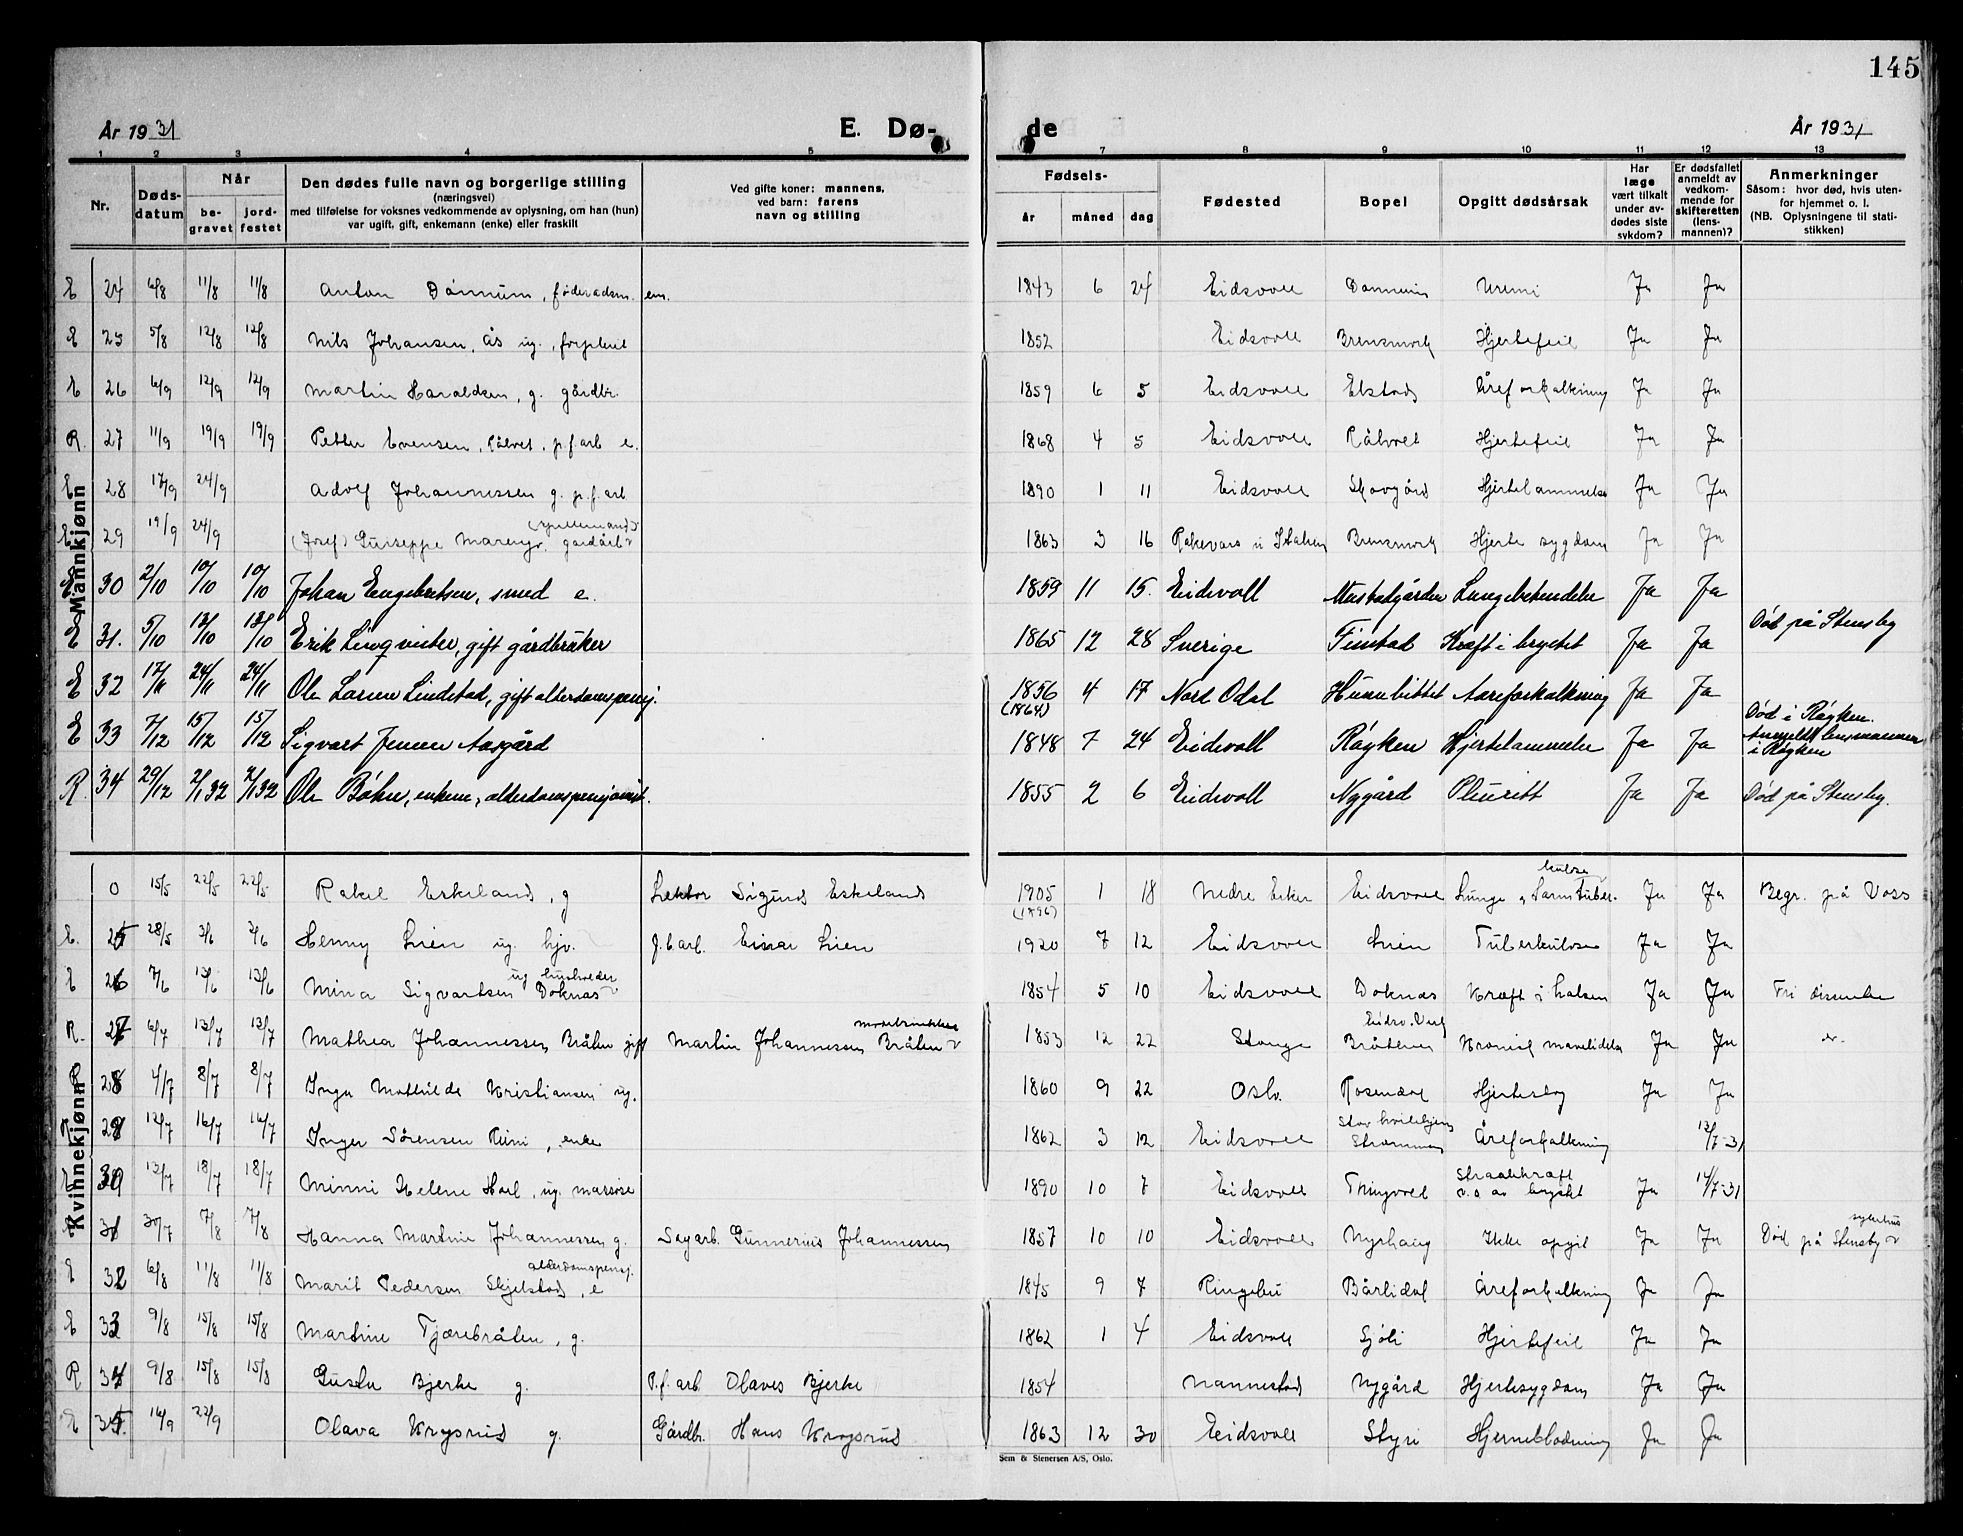 145
År 1931 E. Dø- de År 1931
1 2 3 4 5 7 8 9 10 11 12 13
Nr. Døds-datum Når be-gravet jord-festet
Den dødes fulle navn og borgerlige stilling
(næringsvei)
med tilføielse for voksnes vedkommende av oplysning, om han (hun)
var ugift, gift, enkemann (enke) eller fraskilt
Ved gifte koner: mannens,
ved barn: farens
navn og stilling
Fødsels- år måned dag
Fødested Bopel Opgitt dødsårsak
Har læge vært tilkalt under av-dødes siste sykdom?
Er dødsfallet anmeldt av vedkom-mende for skifteretten (lens-mannen)?
Anmerkninger
Såsom: hvor død, hvis uten-for hjemmet o. l.
(NB. Oplysningene til stati-stikken)
Mannkjønn
E 24 6/8 11/8 11/8 Anton Dønnum, føderådsm. em. 1843 6 24 Eidsvoll Dønnum Uremi Ja Ja
E 25 5/8 12/8 12/8 Nils Johansen, Ås ug., forpleiet 1852 Eidsvoll Brensmork Hjertefeil Ja Ja
E 26 6/9 12/9 12/9 Martin Haraldsen, g. gårdbr. 1859 6 5 Eidsvoll Elstad Åreforkalkning Ja Ja
R. 27 11/9 19/9 19/9 Petter Evensen, Råholt, j.f.arb e. 1868 4 5 Eidsvoll Råholt Hjertefeil Ja Ja
E 28 17/9 24/9 Adolf Johannessen g. j.f.arb 1890 1 11 Eidsvoll Skovgård Hjertelammelse Ja Ja
E 29 19/9 24/9 (Josef) Guiseppe (spillemand) gårdarb 1863 3 16 i Italien Brensmork Hjerte sygdom Ja Ja
E 30 2/10 10/10 10/10 Johan Engebretsen, smed e. 1859 11 15. Eidsvoll Mustadgården Lungebetendelse Ja Ja
E 31. 5/10 13/10 13/10 Erik Lingvister, gift gårdbruker 1865 12 28 Sverige Finstad Kræft i brystet Ja Ja Død på Stensby
E 32 17/11 24/11 24/11 Ole Larsen Lindstad, gift alderdomspensj. 1856 (1864) 4 17 Nord Odal Hunnbittet Aareforkalkning Ja Ja
E 33 7/12 15/12 15/12 Sigvart Jensen Aasgård 1848 7 24 Eidsvoll Røyken Hjertelammelse Ja Ja Død i Røyken. Anmeldt lensmannen i Røyken
R. 34 29/12 2/1 32 2/1 32 Ole Bøhn, enkem., alderdomspensjonist. 1855 2 6 Eidsvoll Nygård Pleuritt Ja Ja Død på Stensby.
Kvinnekjønn
0 15/5 22/5 22/5 Rakel Eskeland, g Lektor Sigurd Eskeland 1905 (1896) 1 18 Nedre Eiker Eidsvoll Lunge og Tarmtuberkulose Ja Ja Begr. på Voss
E. 25 28/5 3/6 3/6 Henny Lien ug. hjv. j.b.arb. Einar Lien 1920 7 12 Eidsvoll Lien Tuberkulose Ja Ja
E 26 7/6 13/6 13/6 Mina Sigvartsen Doknæs ug husholder 1854 5 10 Eidsvoll Doknæs Kræft i halsen Ja Ja Fri
R. 27 6/7 13/7 13/7 Mathea Johannessen Bråten gift Martin Johannessen Bråten 1853 12 22 Stange Eidsv. Verk Bråtenes Kronisk mavelidelse Ja Ja
R 28 4/7 8/7 8/7 Inga Mathilde Kristiansen ug. 1860 9 22 Oslo. Rosendal Ja Ja
29 12/7 16/7 16/7 Inger Sørensen, enke 1862 3 12 Eidsvoll Strømmen Åreforkalkning 13/7-31
30 13/7 18/7 18/7 Minni Helene Hoel, ug. massøse 1890 10 7 Eidsvoll Thingvoll Straalekræft av brystet Ja 14/7-31
31 30/7 7/8 7/8 Hanna Martine Johannessen g. Sagarb. Gunnerius Johannessen 1857 10 10 Eidsvoll Nyhaug Ikke opgit Ja Ja Død på Stensby sykehus
E 32 6/8 11/8 11/8 Marit Pedersen Skjelstad, e alderdomspensj. 1845 9 7 Ringebu Bårlidal Åreforkalkning Ja Ja
E 33 9/8 15/8 15/8 Martine Tjærebråten, g. 1862 1 4 Eidsvoll Sjøli Hjertefeil Ja Ja
R 34 9/8 15/8 15/8 Gusta Bjerke g. P.f.arb. Olaves Bjerke 1854 Nannestad Nygård Hjertesygdom Ja Ja
E 35 16/9 22/9 Olava Krogsrud g. Gårdbr. Hans Krogsrud 1863 12 30 Eidsvoll Styri Hjerneblødning Ja Ja
Sem & Stenersen A/S, Oslo.